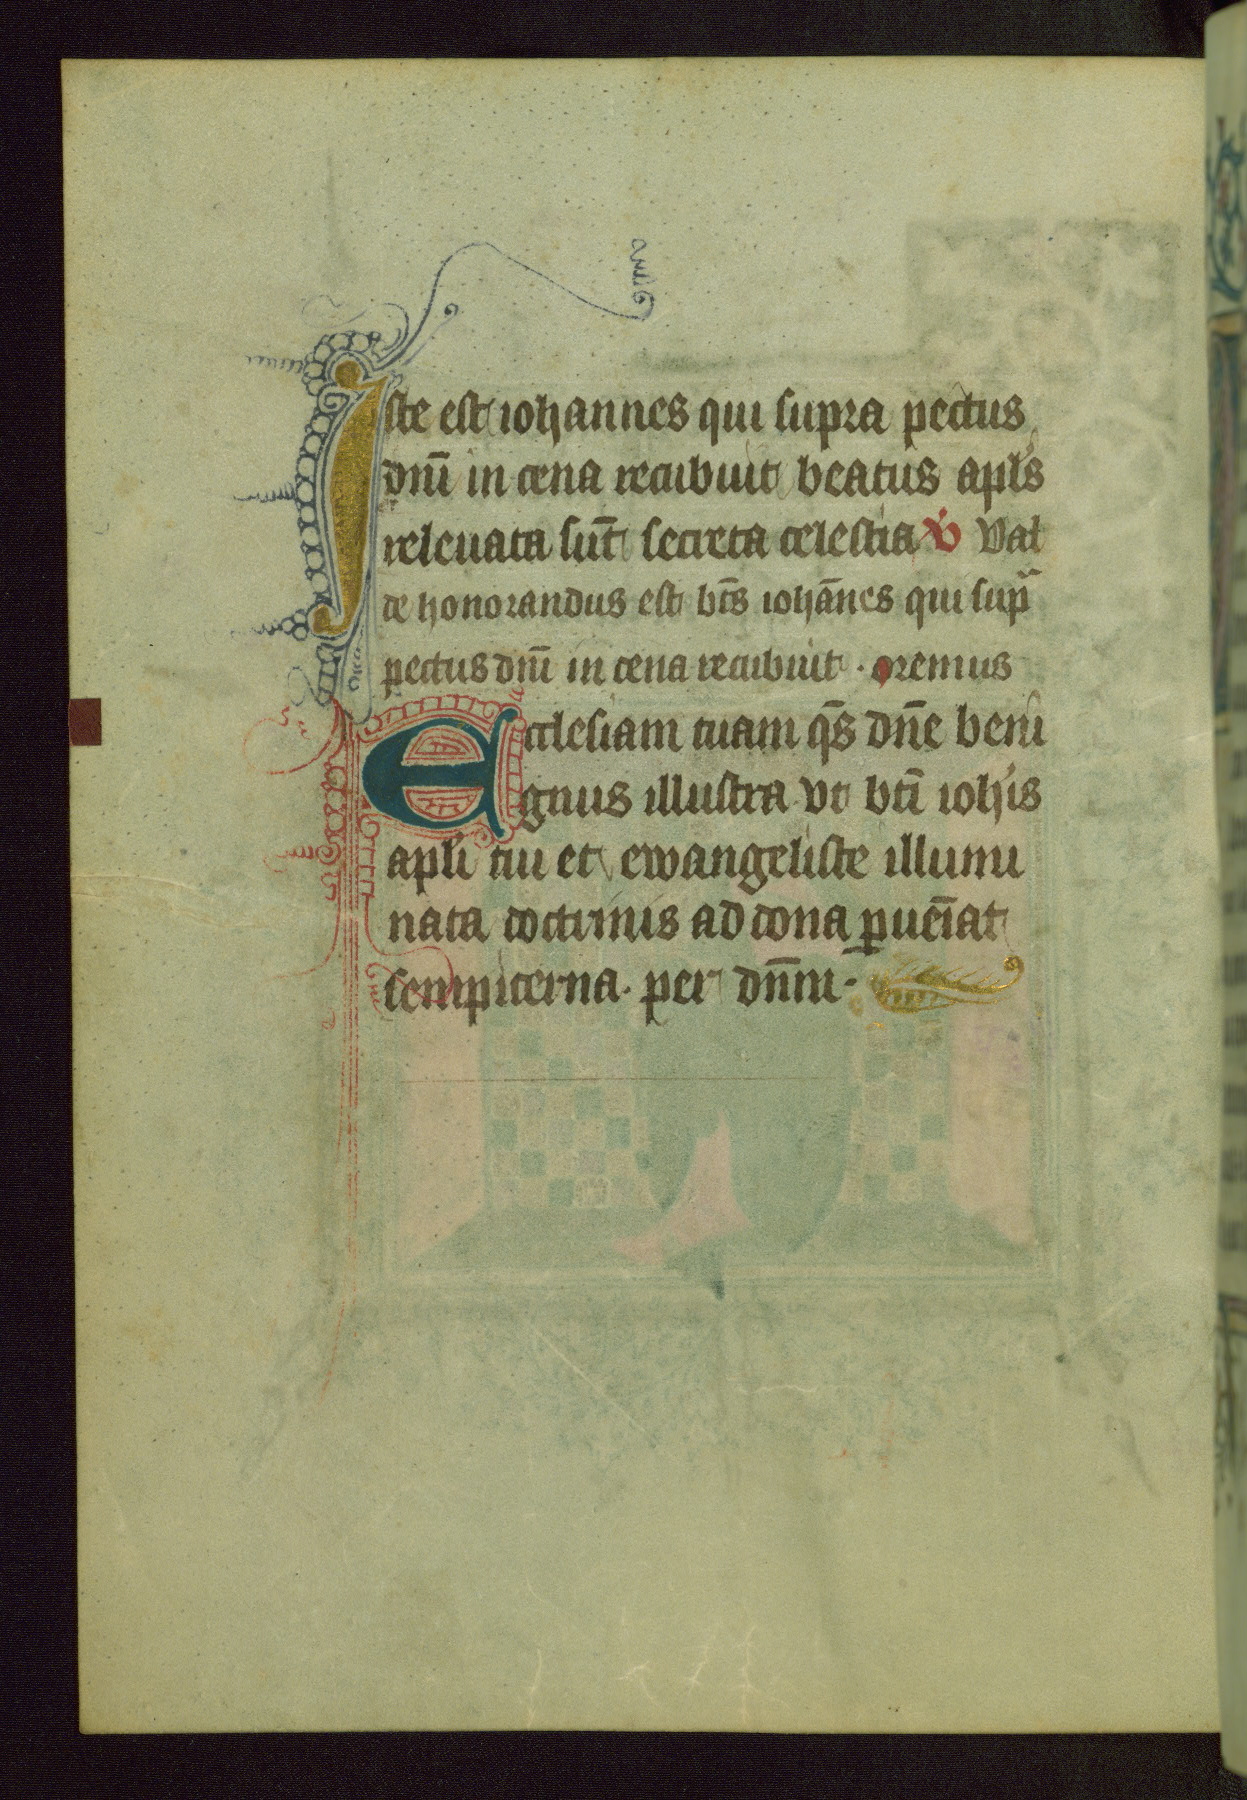 Iste est iohannes qui supra pectus
dn̄i in cena recubuit beatus apl's
releuata sūt secreta celestia ℣ Val
de honorandus est bt̄s iohānes qui sup̄
pectus dn̄i in cena recubuit · oremus
Ecclesiam tuam qs̄ dn̄e beni
gnus illustra vt bt̄i ioh'is
apl'i tui et ewangeliste illumi
nata doctrinis ad dona ꝑueīat
sempiterna · per dn̄m ·